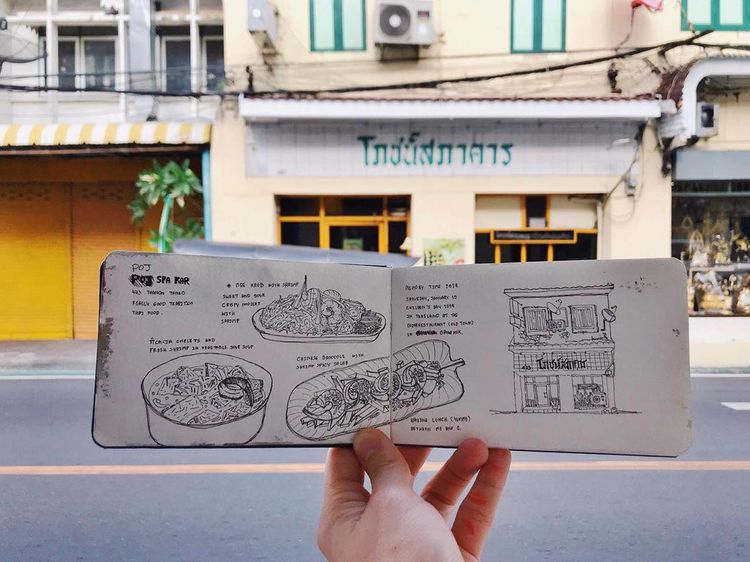 โภชน์สภาคาร
POJ
SPA KAR
443 TANAO
REALLY GOOD TRADITION
THAI FOOD.
MEE KROB WITH SHRIMP
SWEET AND SOUR
CRISPY NOODLE
WITH
SHRIMP
OMELETS AND
FRESH SHRIMP IN VEGETABLE SOUR SOUP
CHINESE BROCCOLI WITH
SHRIMP SPICY SALAD
SATURDAY, JANUARY 12
CHILDREN'S DAY 2019
IN THAILAND AT THE
(OLD TOWN)
IN BANGKOK
LUNCH (YUMMY)
BETWEEN ME AND
โภชน์สภาคาร